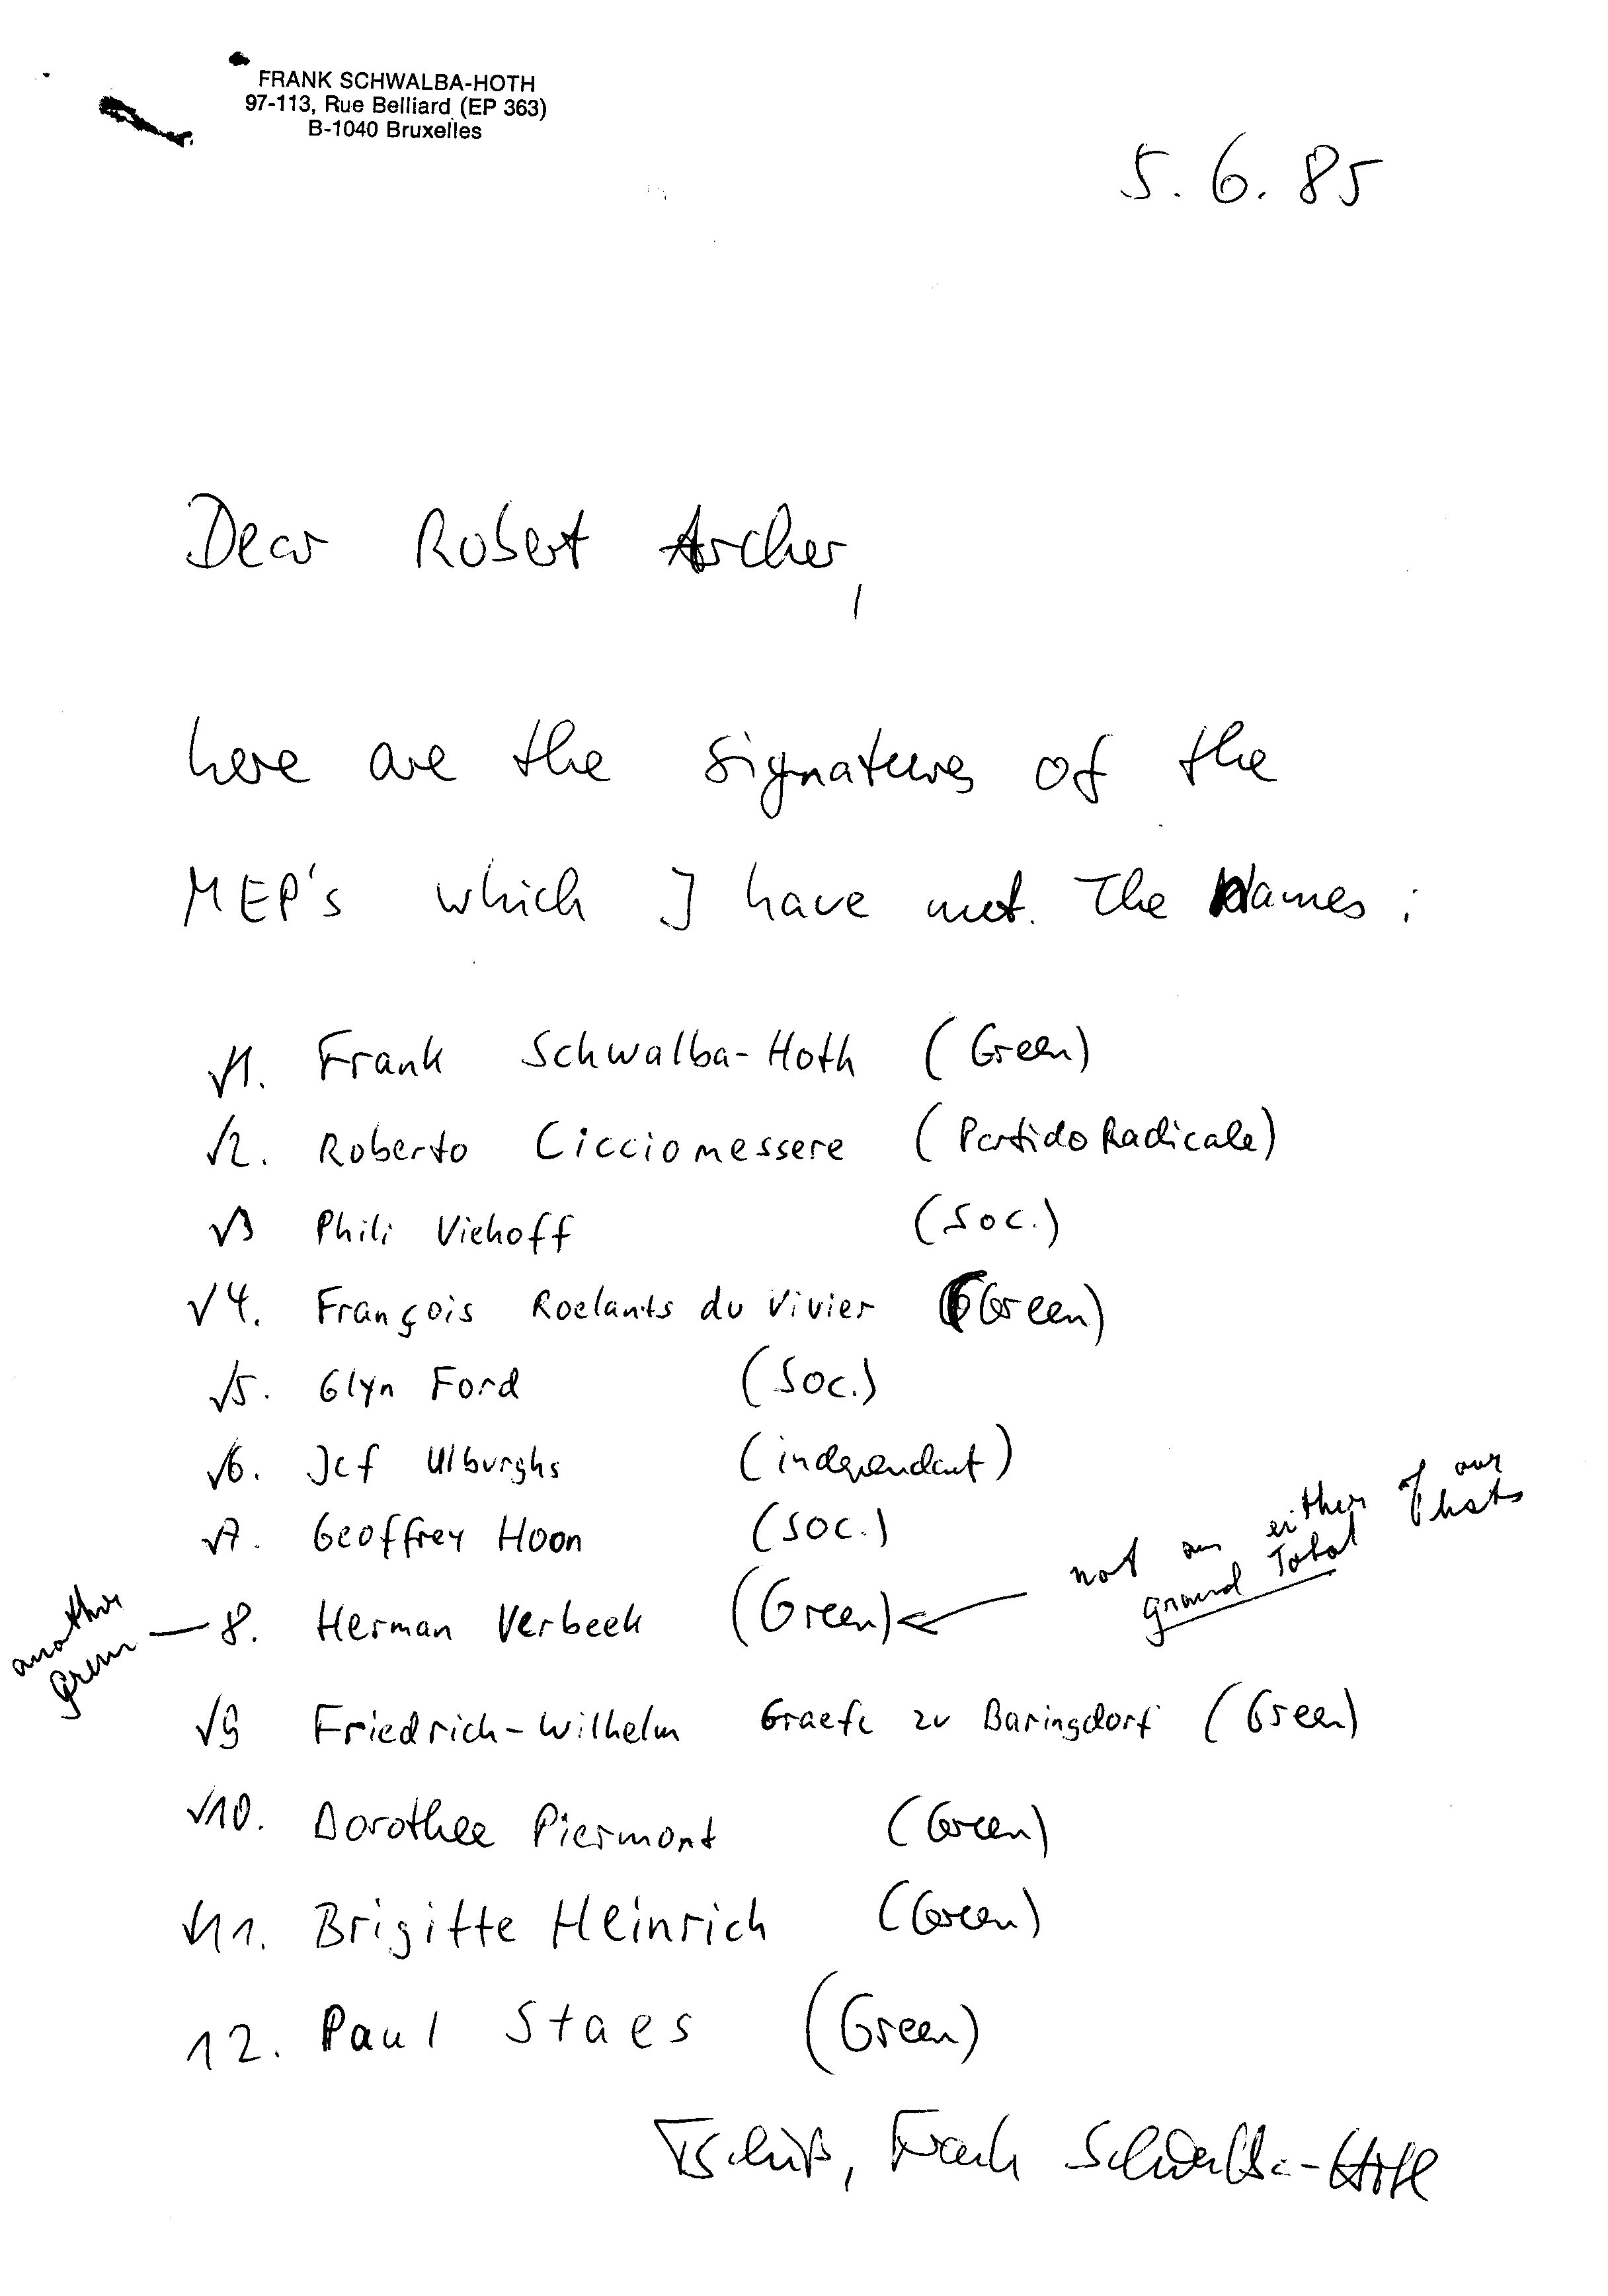 FRANK SCHWALBA-HOTH
97-113, Rue Belliard (EP 363)
B-1040 Bruxelles
5.6.85
Dear Robert Archer,
here are the signatures of the
MEP's which I have met. The Names:
√1. Frank Schwalba-Hoth (Green)
√2. Roberto Cicciomessere (Partido Radicale)
√3 Phili Viehoff (Soc.)
√4. François Roelants du Vivier (Green)
√5. Glyn Ford (Soc.)
√6. Jef Ulburghs (independant)
√7. Geoffrey Hoon (SOC.)
not on either of our lists
Grand Total
another green — 8. Herman Verbeek (Green)
√9 Friedrich-Wilhelm Graefe zu Baringdorf (Green)
√10. Dorothee Piermont (Green)
√11. Brigitte Heinrich (Green)
12. Paul Staes (Green)
Tschüß, Frank Schwalba-Hoth